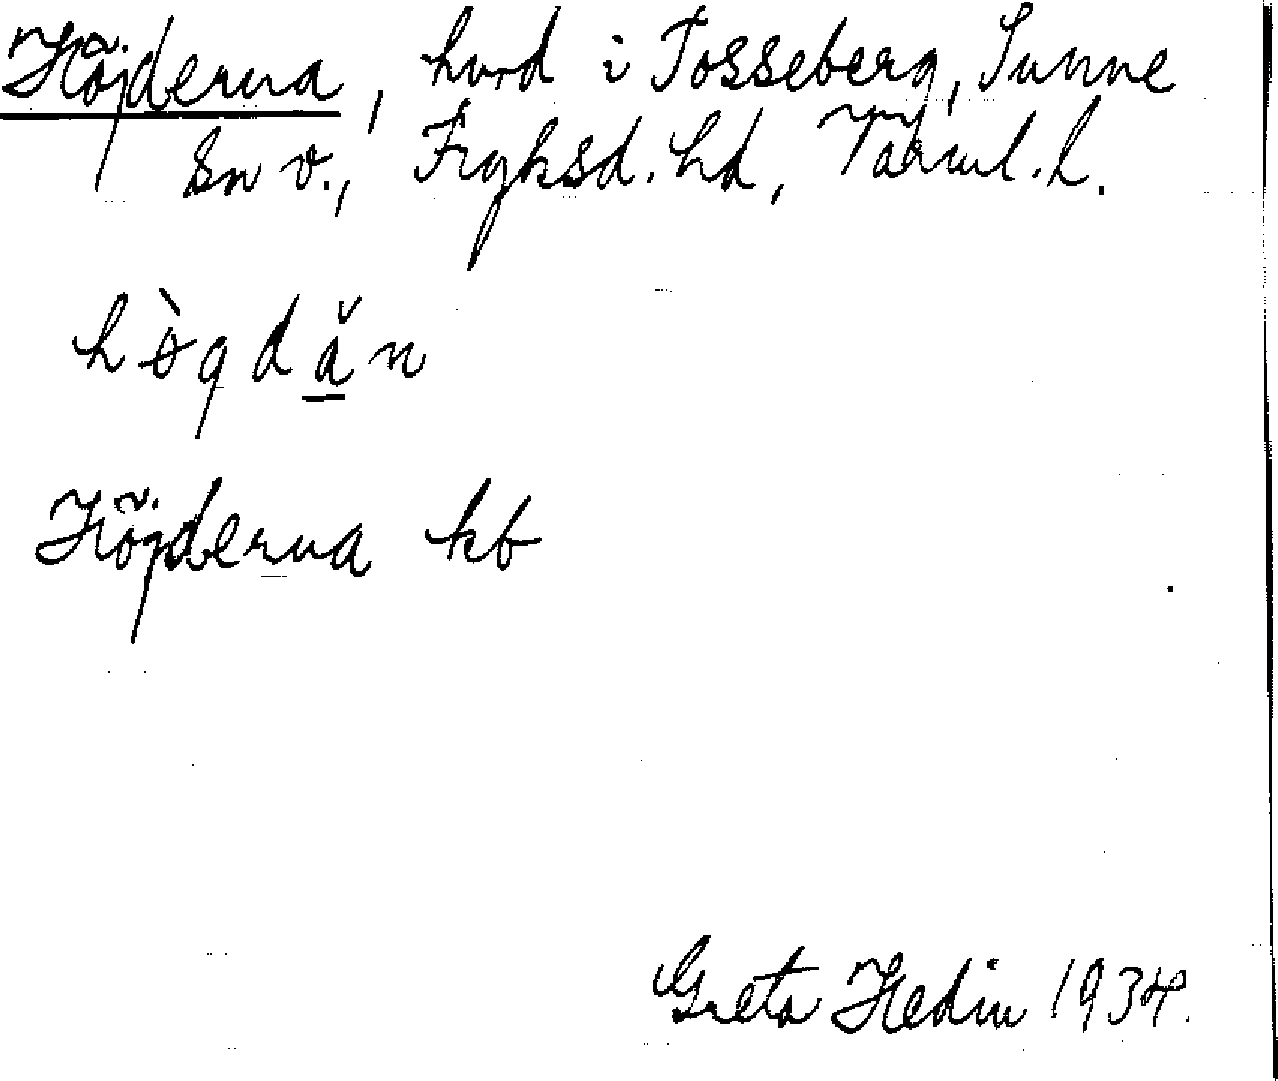 Höjderna, hvrd i Tosseberg, Sunne
sn v., Fryksd. hd, Värml. l.
hø̀gdǎn
Höjderna kb
Greta Hedin 1934.